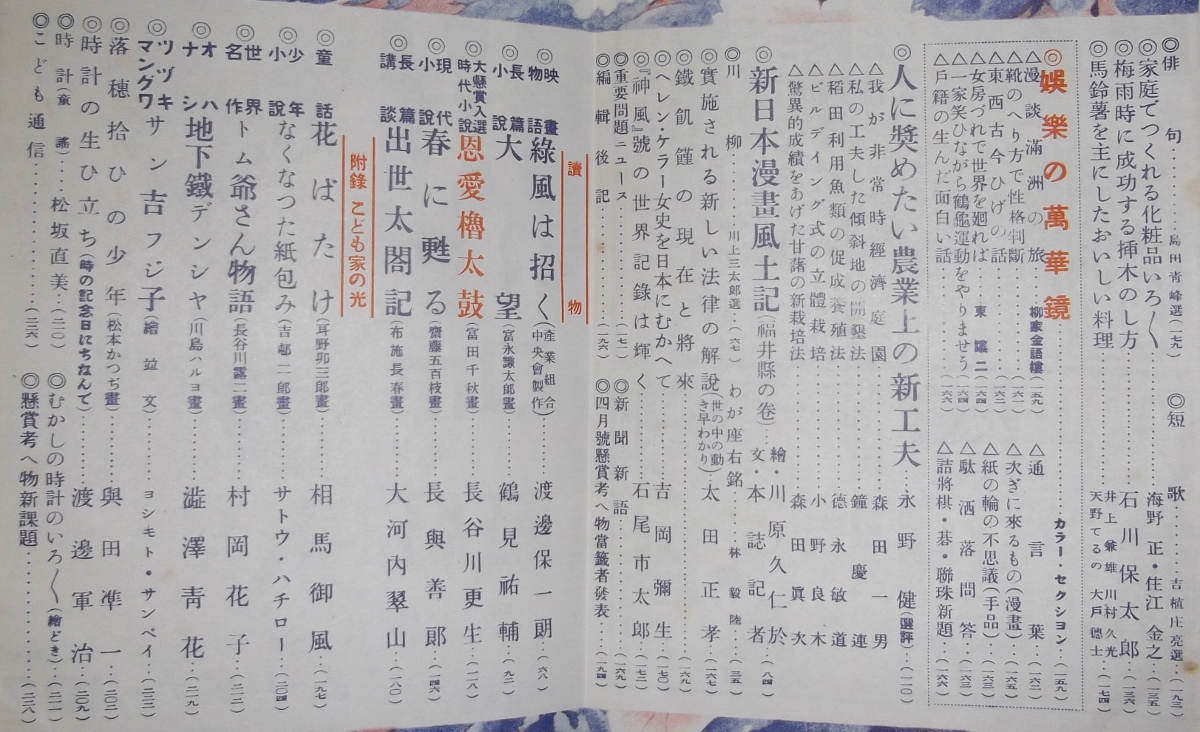 ◎俳句…島田青峰選…(一七九)
◎短歌…吉植庄亮選…(一九三)
◎家庭でつくれる化粧品いろ〱…海野正・住江金之…(一三五)
◎梅雨時に成功する挿木のし方…石川保太郎…(一三六)
◎馬鈴薯を主にしたおいしい料理…井上兼雄 川村久光 天野てるの 大戸德士…(一七四)
◎娛樂の萬華鏡…カラー・セクション…(一五九)
△漫談滿洲の旅…柳家金語樓…(一五九)
△靴のへり方で性格判斷…(一六一)
△東西古今ひげの話…(一六二)
△女房づれで世界を廻れば…東 …(一六四)
△一家笑ひながら鶴龜運動をやりませう…(一六四)
△戶籍の生んだ面白い話…(一六六)
△通言葉…(一六二)
△次ぎに來るもの(漫畫)…(一六五)
△紙の輪の不思議(手品)…(一六三)
△駄洒落問答…(一六三)
△詰將棋・碁・聯珠新題…(一六六)
◎人に奬めたい農業上の新工夫…永野健(選評)…(一一〇)
△我が非常時經濟庭園…森田一男
△私の工夫した傾斜地の開墾法…鐘慶連
△稻田利用魚類の促成養殖法…德永敏道
△ビルディング式の立體栽培…小野良木
△驚異的成績をあげた甘藷の新栽培法…森田眞次
◎新日本漫畫風土記(福井縣の卷) 繪・川原久仁於 文・本誌記者…(八四)
◎川柳…川上三太郎選…(六七)
わが座右銘…林毅陸…(三五)
◎實施される新しい法律の解說(世の中の動き早わかり)…太田正孝…(一六七)
◎鐵飢饉の現在と將來…(一六九)
◎ヘレン・ケラー女史を日本にむかへて…吉岡彌生…(一七〇)
◎『神風』號の世界記錄は輝く…石尾市太郎…(一七二)
◎重要問題ニュース…(一七一)
◎新聞新語…(一六九)
◎編輯後記…(一九六)
◎四月號懸賞考へ物當籤者發表…(一九四)
讀物
◎映畫物語 綠風は招く(產業組合中央會製作)…渡邊保一朗…(六八)
◎長篇小說 大望(富永謙太郎畫)…鶴見祐輔…(九二)
◎大懸賞入選時代小說 恩愛櫓太鼓(富田千秋畫)…長谷川更生…(一一八)
◎現代小說 春に甦る(齋藤五百枝畫)…長與善郎…(一四六)
◎長篇講談 出世太閤記(布施長春畫)…大河內翠山…(一八〇)
附錄 こども家の光
◎童話 花ばたけ(耳野卯三郎畫)…相馬御風…(一九七)
◎少年小說 なくなつた紙包み(吉邨二郎畫)…サトウ・ハチロー…(二〇四)
◎世界名作 トム爺さん物語(長谷川露二畫)…村岡花子…(二一二)
◎オハナシ 地下鐵デンシヤ(川島ハルヨ畫)…澁澤青花…(二一九)
◎ツヅキマングワ サン吉フジ子(繪並文)…ヨシモト・サンペイ…(二三三)
◎落穗拾ひの少年(松本かつぢ畫)…與田凖一…(二〇二)
◎時計の生ひ立ち(時の記念日にちなんで)…渡邊軍治…(二〇九)
◎時計(童謠)…松坂直美…(二一〇)
◎むかしの時計のいろ〱(繪どき)…(二一一)
◎こども通信…(二三六)
◎懸賞考へ物新課題…(二三八)